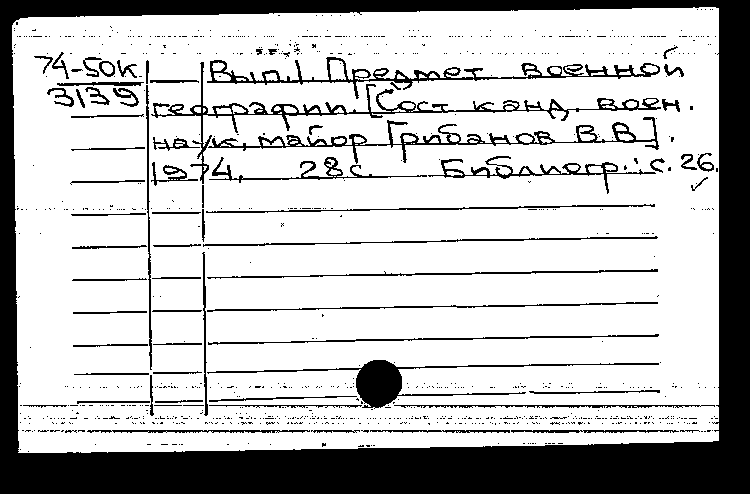 74-50к
3139
Вып.1. Предмет военной
географии. [Сост канд. воен.
наук, майор Грибанов В.В].
1974, 28с. Библиогр.: с. 26.